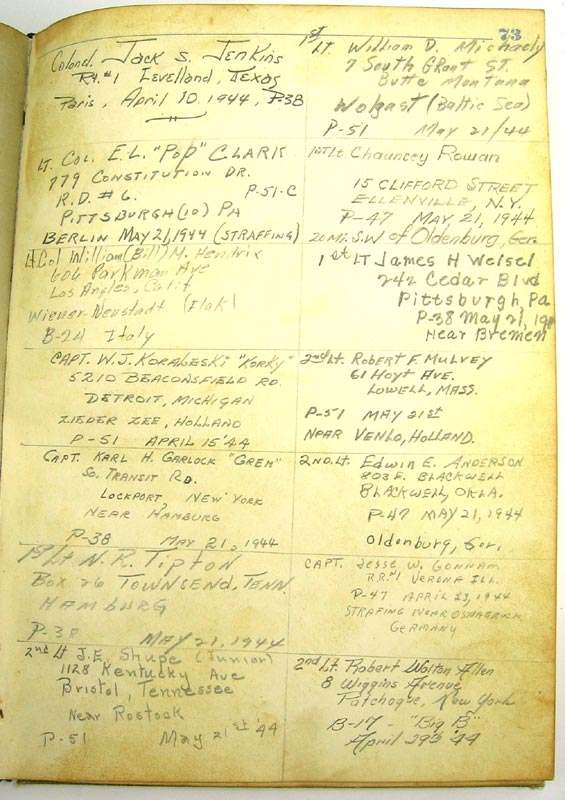 73
Colonel Jack S. Jenkins
Rt. #1 Levelland, Texas
Paris, April 10, 1944, P38
Lt. Col. E.L. "Pop" Clark
779 Constitution Dr.
R.D. #6. P-51-C
Pittsburgh (10) Pa
Berlin May 21, 1944 (Straffing)
Lt Col William (Bill) M. Hendrix
606 Parkman Ave
Los Angles, Calif
Wiener-Neustadt (Flak)
B-24 Italy
Capt. W.J. Koraleski "Korky"
5210 Beaconsfield Rd.
Detroit, Michigan
Zieder Zee, Holland
P-51 April 15 '44
Capt. Karl H. Garlock "Grem"
So. Transit Rd.
Lockport, New York
Near Hamburg
P-38 May 21, 1944
1st Lt N.R. Tipton
Box 26 Townsend, Tenn.
Hamburg
P-38 May 21, 1944
2nd Lt J.E. Shupe (Junior)
1128 Kentucky Ave
Bristol, Tennessee
Near Rostock
P-51 May 21st '44
1st Lt. William D. Michaely
7 South Grant St.
Butte Montana
Wolgast (Baltic Sea)
P-51 May 21/44
1st Lt Chauncey Rowan
15 Clifford Street
Ellenville, N.Y.
P-47 May, 21, 1944
20 Mi. S.W of Oldenburg, Ger.
1st Lt James H Weisel
242 Cedar Blvd
Pittsburgh Pa
P-38 May 21,
Near Bremen
2nd Lt. Robert F. Mulvey
61 Hoyt Ave.
Lowell, Mass.
P-51 May 21st
Near Venlo, Holland.
2nd. Lt. Edwin E. Anderson
803 E. Blackwell
Blackwell, Okla.
P-47 May 21, 1944
Oldenburg, Ger.
Capt. Jesse W. Gonnam
R.R. #1 Verona Ill.
P-47 April 23, 1944
Strafing near Osnabrück
Germany
2nd Lt Robert Wolton Allen
8 Wiggins Avenue
Patchogue, New York
B-17 - "Big B"
April 29th '44